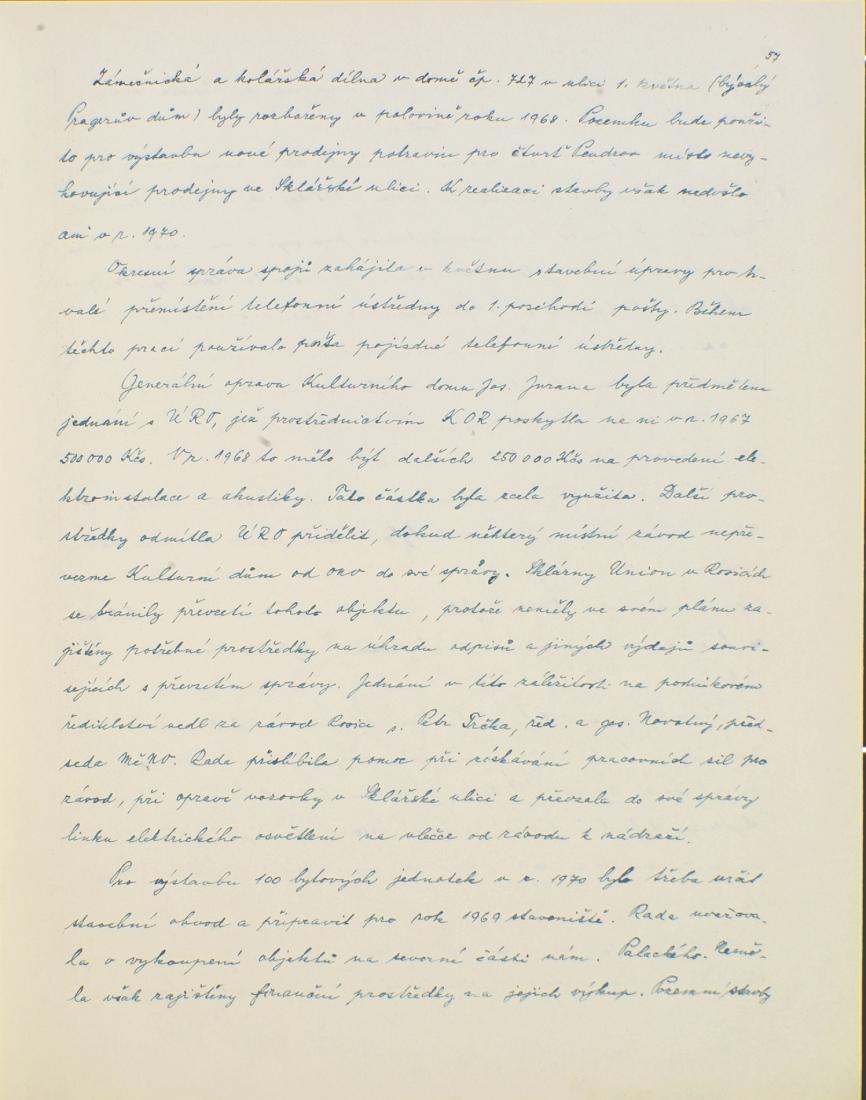 57
Zámečnická a kolářská dílna v domě čp. 727 v ulici 1. května (bývalý
Pragerův dům) byly rozbořeny v polovině roku 1968. Pozemku bude použi-
to pro výstavbu nové prodejny potravin pro čtvrť Pendrov místo nevy-
hovující prodejny ve Sklářské ulici. K realizaci stavby však nedošlo
ani v r. 1970.
Okresní správa spojů zahájila v květnu stavební úpravy pro tr-
valé přemístění telefonní ústředny do 1. poschodí pošty. Během
těchto prací používala pošta pojízdné telefonní ústředny.
Generální oprava Kulturního domu Jos. Jurana byla předmětem
jednání s ÚRO, jež prostřednictvím KOR poskytla na ni v r. 1967
500 000 Kčs. V r. 1968 to mělo být dalších 250 000 Kčs na provedení ele-
ktroinstalace a akustiky. Tato částka byla zcela využita. Další pro-
středky odmítla ÚRO přidělit, dokud některý místní závod nepře-
vezme Kulturní dům od OKV do své správy. Sklárny Union v Rosicích
se bránily převzetí tohoto objektu, protože neměly ve svém plánu za-
jištěny potřebné prostředky na úhradu odpisů a jiných výdajů souvi-
sejících s převzetím správy. Jednání v této záležitosti na podnikovém
ředitelství vedl za závod Rosice s. Petr Trčka, řed. a ges. Novotný, před-
seda MěNV. Rada přislíbila pomoc při získávání pracovních sil pro
závod, při opravě vozovky v Sklářské ulici a převzala do své správy
linku elektrického osvětlení na vlečce od závodu k nádraží.
Pro výstavbu 100 bytových jednotek v r. 1970 bylo třeba určit
stavební obvod a připravit pro rok 1969 staveniště. Rada uvažova-
la o vykoupení objektů na severní části nám. Palackého. Nemě-
la však zajištěny finanční prostředky na jejich výkup. Pozemní stavby